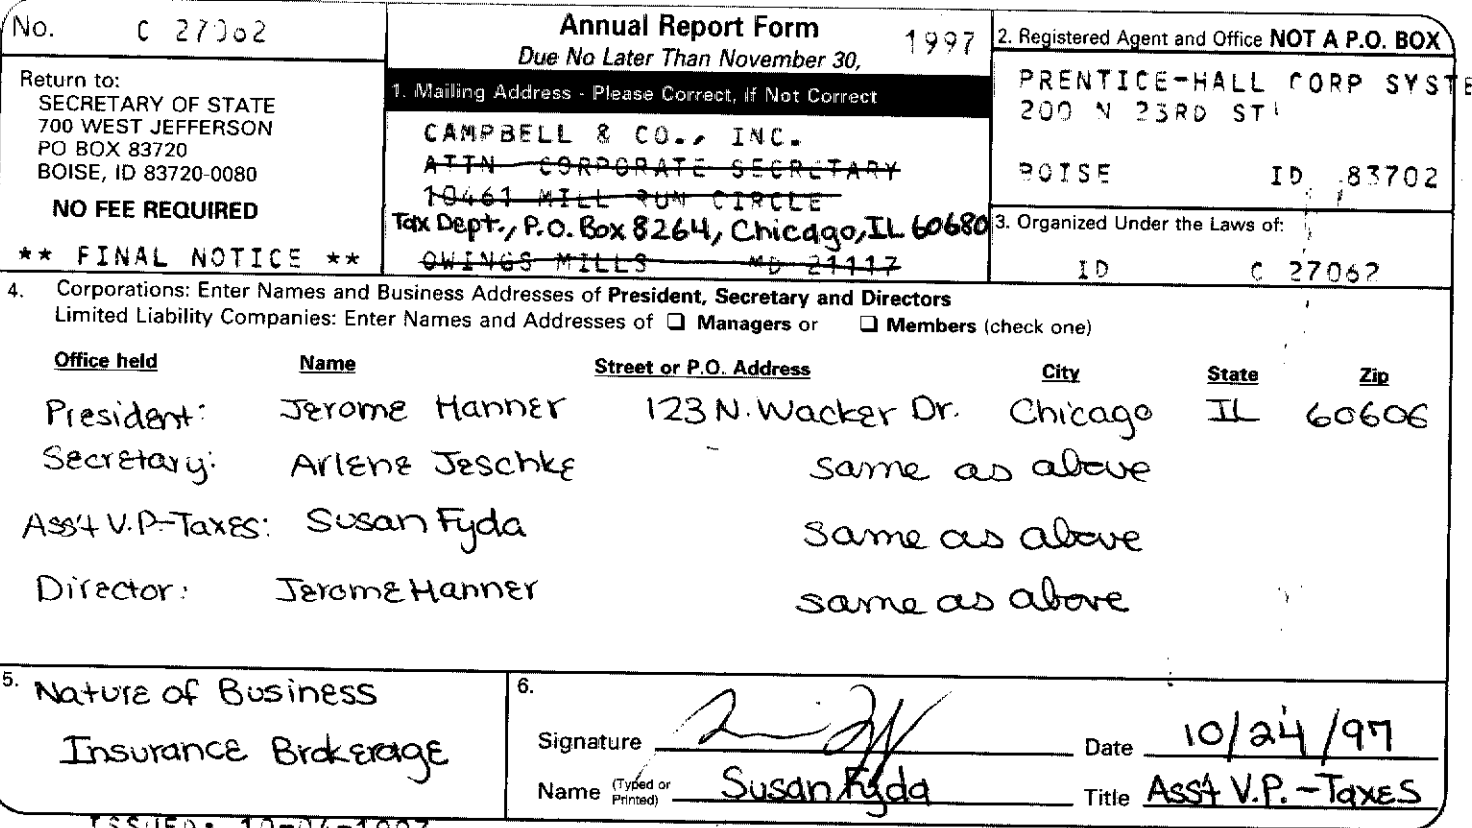 No. C 27062
Annual Report Form 1997
Due No Later Than November 30,
2. Registered Agent and Office NOT A P.O. BOX
Return to:
SECRETARY OF STATE
700 WEST JEFFERSON
PO BOX 83720
BOISE, ID 83720-0080
NO FEE REQUIRED
** FINAL NOTICE **
1. Mailing Address - Please Correct, If Not Correct
CAMPBELL & CO., INC.
ATTN CORPORATE SECRETARY
10461 MILL RUN CIRCLE
Tax Dept., P.O. Box 8264, Chicago, IL 60680
OWINGS MILLS MD 21117
PRENTICE-HALL CORP SYSTE
200 N 23RD ST
BOISE ID 83702
3. Organized Under the Laws of:
ID C 27062
4. Corporations: Enter Names and Business Addresses of President, Secretary and Directors
Limited Liability Companies: Enter Names and Addresses of ☐ Managers or ☐ Members (check one)
Office held Name Street or P.O. Address City State Zip
President: Jerome Hanner 123 N. Wacker Dr. Chicago IL 60606
Secretary: Arlene Jeschke same as above
Ass't V.P.-Taxes: Susan Fyda same as above
Director: Jerome Hanner same as above
5. Nature of Business
Insurance Brokerage
6.
Signature Date 10/24/97
Name (Typed or Printed) Susan Fyda Title Ass't V.P. - Taxes
ISSUED: 10-04-1997